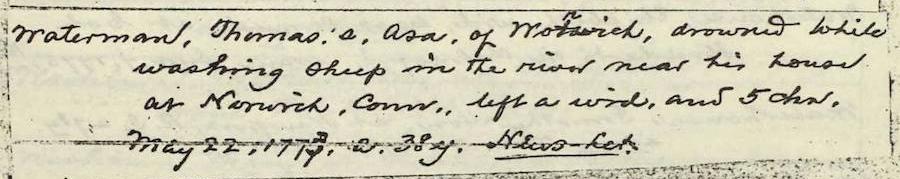 Waterman, Thomas, s. Asa, of Norwich, drowned while
washing sheep in the river near his house
at Norwich, Conn., left a wid. and 5 chn.
May 22, 1773. a. 38 y. News-Let.